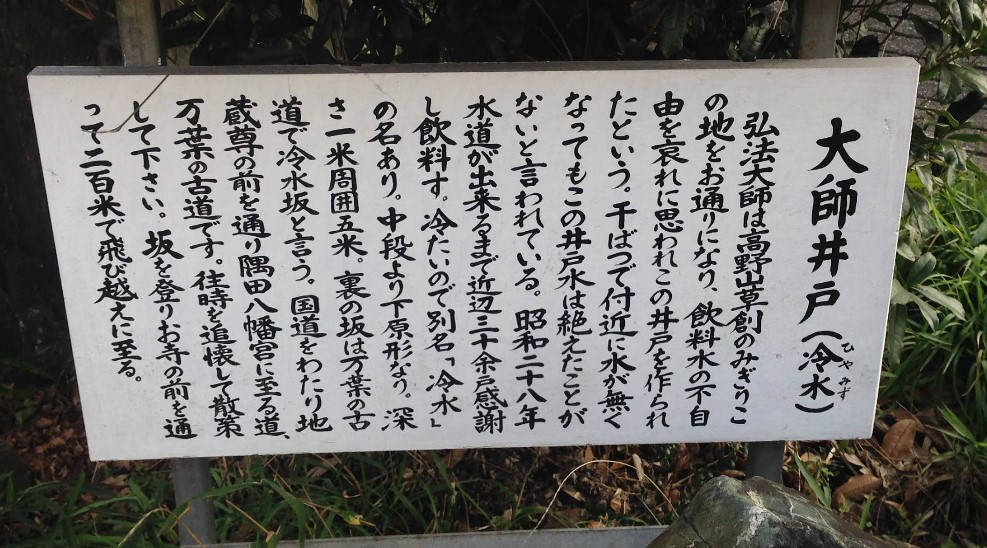 大師井戸(冷水)
ひやみず
弘法大師は高野山草創のみぎりこ
の地をお通りになり、飲料水の不自
由を哀れに思われこの井戸を作られ
たという。干ばつで付近に水が無く
なってもこの井戸水は絶えたことが
ないと言われている。昭和二十八年
水道が出来るまで近辺三十余戸感謝
し飲料す。冷たいので別名「冷水」
の名あり。中段より下原形なり。深
さ一米周囲五米。裏の坂は万葉の古
道で冷水坂と言う。国道をわたり地
蔵尊の前を通り隅田八幡宮に至る道、
万葉の古道です。往時を追懐して散策
して下さい。坂を登りお寺の前を通
って二百米で飛び越えに至る。